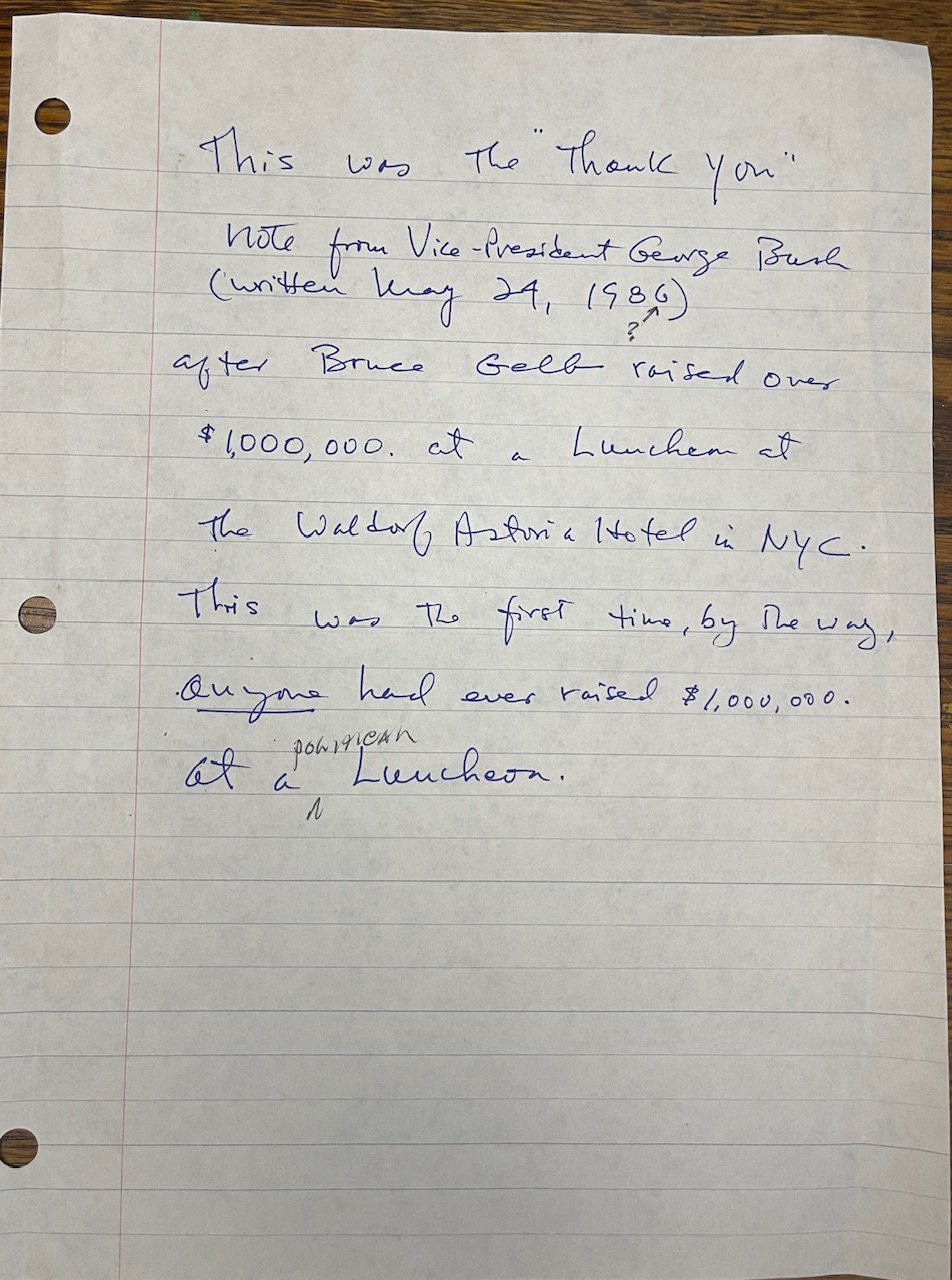 This was the "Thank You"
note from Vice-President George Bush
(written May 24, 1986)
?
after Bruce Gelb raised over
$1,000,000. at a Luncheon at
the Waldorf Astoria Hotel in NYC.
This was the first time, by the way,
anyone had ever raised $1,000,000.
political
at a Luncheon.